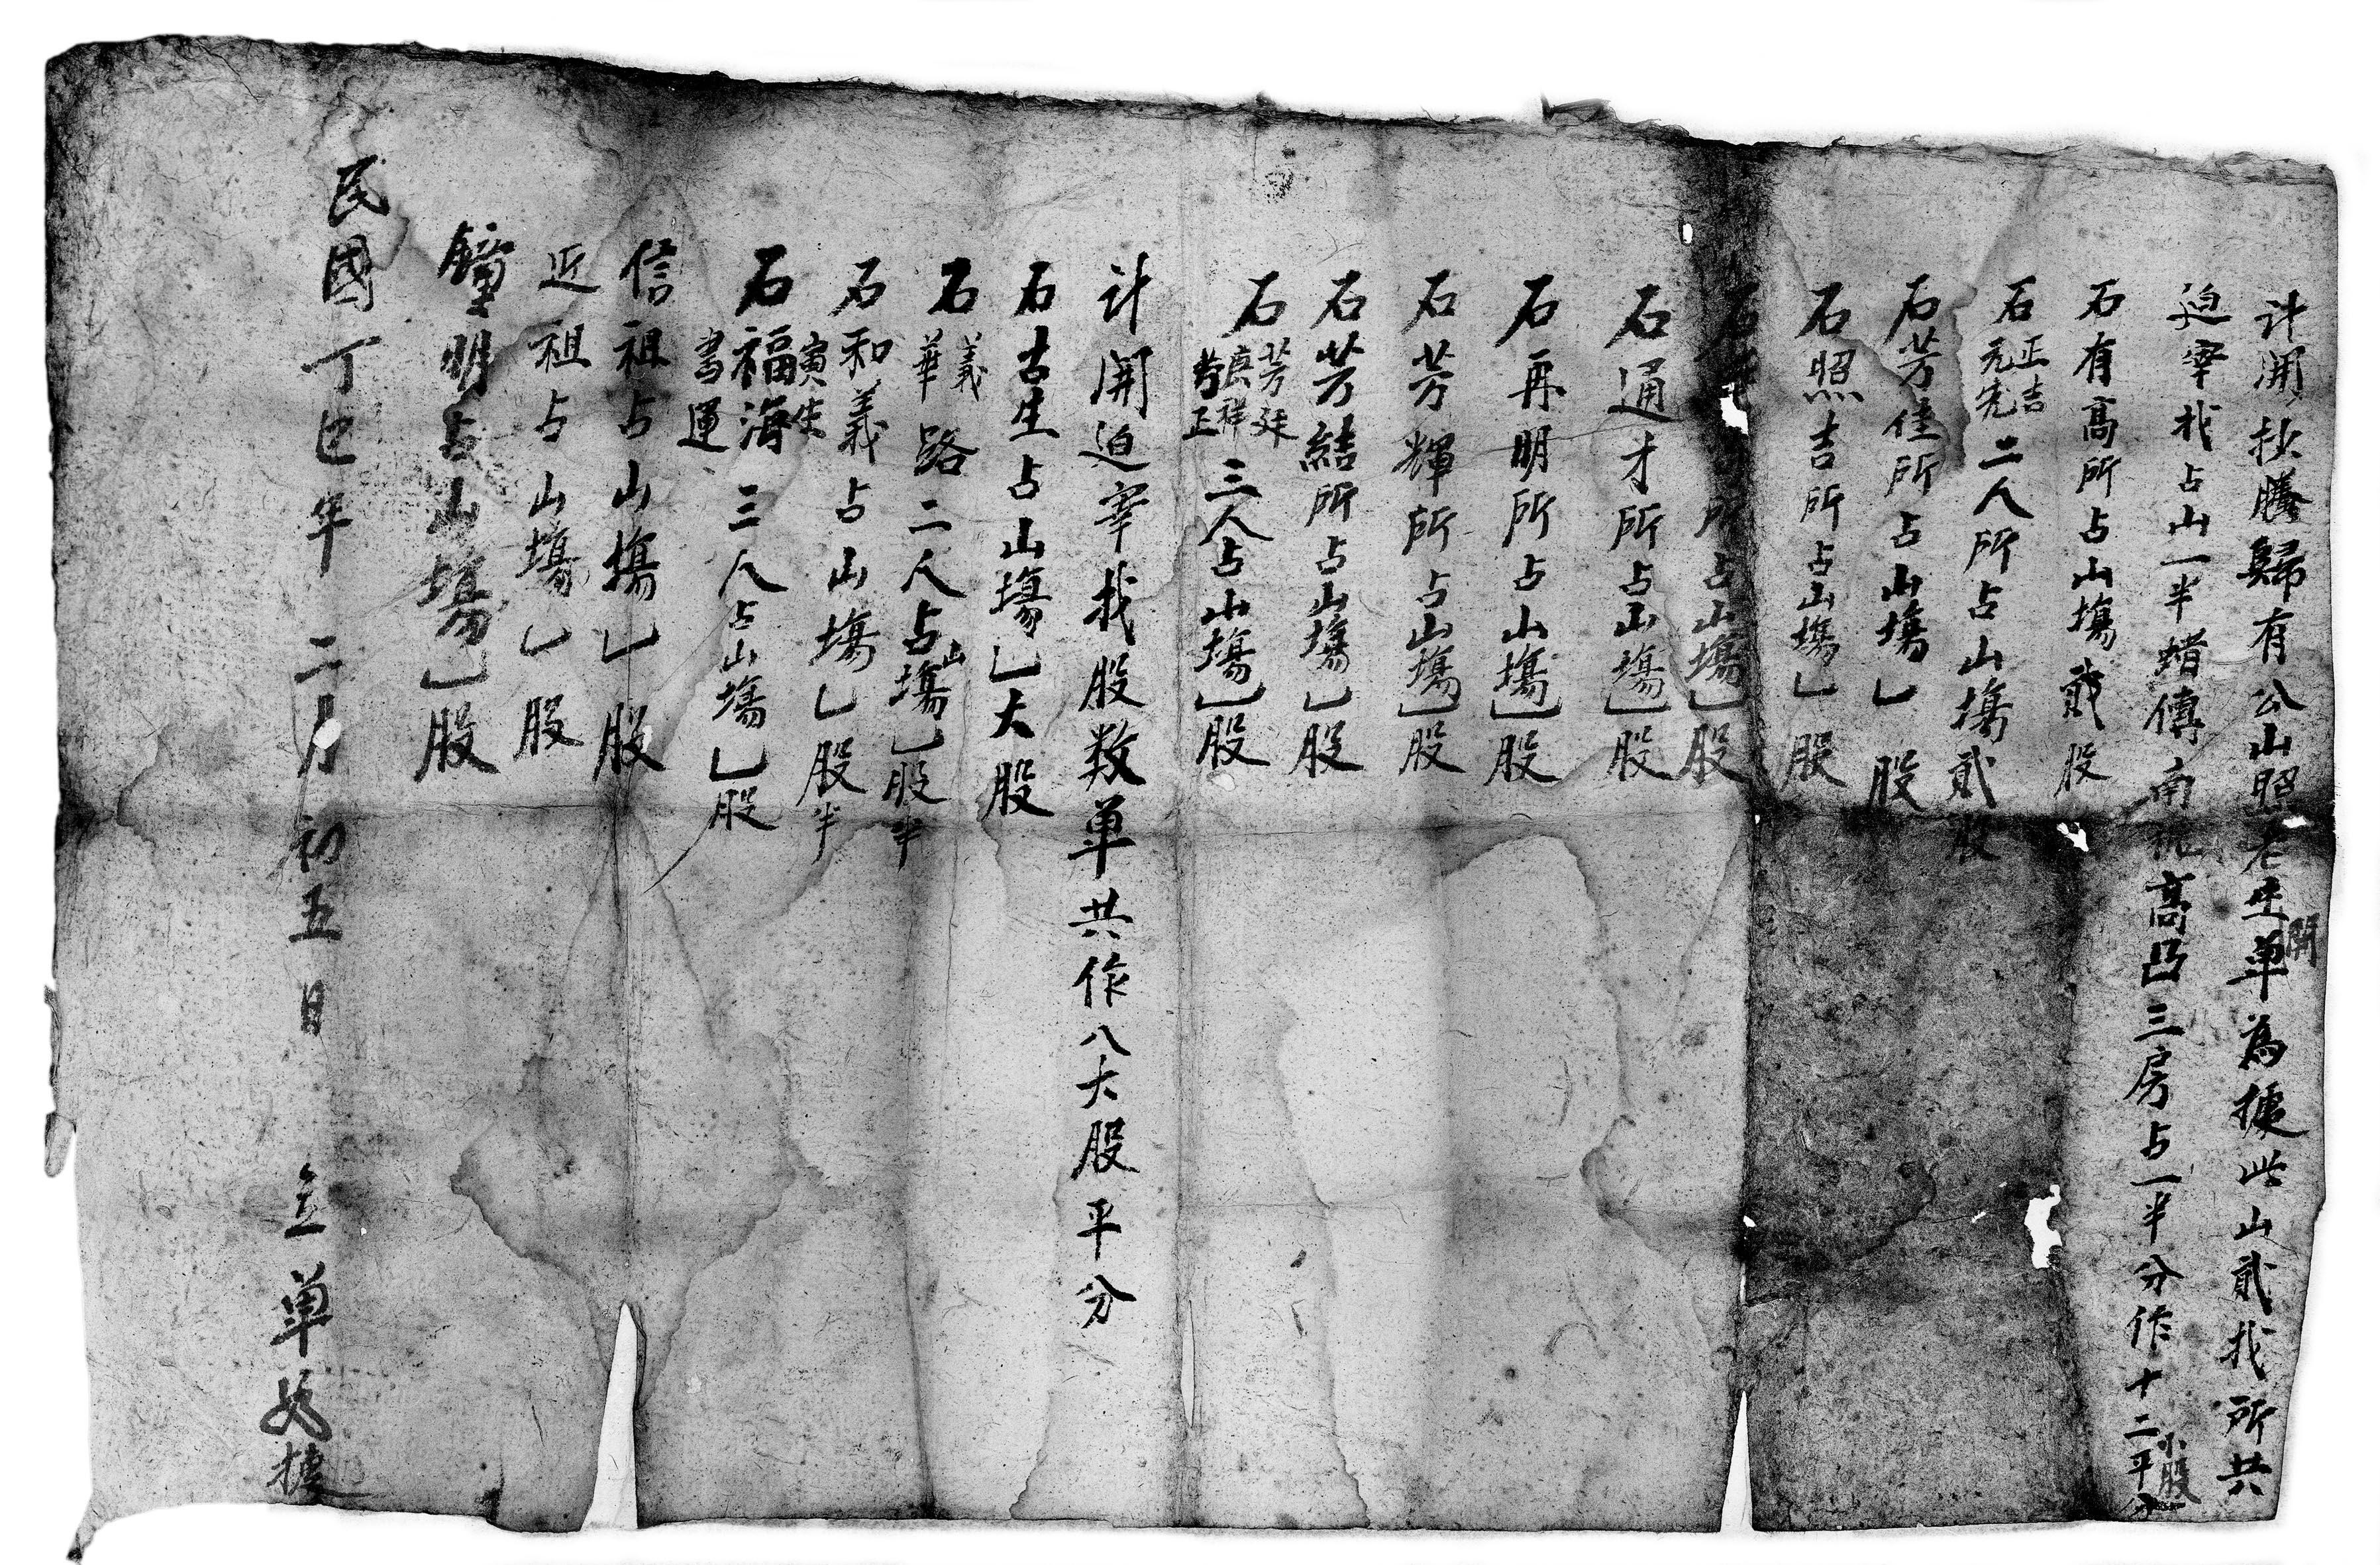 計開抄騰歸有公山照老坐單開為據此山貳找所共
迫宰找占山一半蜡傅南 高凸三房占一半分作十二小股平分
石有高所占山塲貳股
石正吉元先二人所占山塲貳股
石芳佳所占山塲乚股
石照吉所占山塲乚股
石 所占山塲乚股
石通才所占山塲乚股
石再明所占山塲乚股
石芳輝所占山塲乚股
石芳結所占山塲乚股
石芳廷 祥 正三人占山塲乚股
計開迫宰找股数单共作八大股平分
石古生占山塲乚大股
石義華路二人占山塲乚股半
石和義占山塲乚股半
石寅生福海書運三人占山塲乚股
信祖占山塲乚股
近祖占山塲乚股
鐘明占山塲乚股
民國丁巳年二月初五日 立单為據